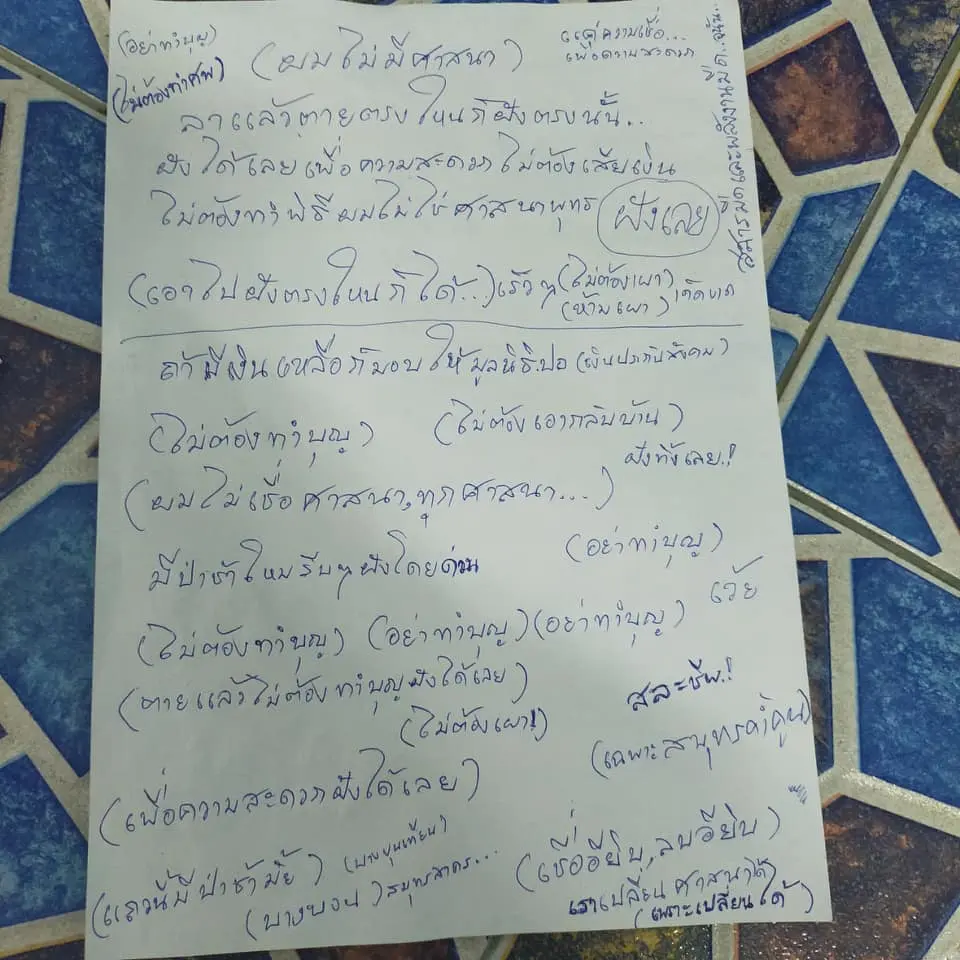 (อย่าทำบุญ)
(ไม่ต้องทำศพ)
(ผมไม่มีศาสนา)
แค่ความเชื่อ...
เพื่อความสะดวก
ลาแล้วตายตรงไหนก็ฝังตรงนั้น..
ฝังได้เลยเพื่อความสะดวกไม่ต้องเสียเงิน
ไม่ต้องทำพิธีผมไม่ใช่ศาสนาพุทธ (ฝังเลย)
(เอาไปฝังตรงไหนก็ได้..) เร็วๆ (ไม่ต้องเผา)
(ห้ามเผา) เด็ดขาด
ถ้ามีเงินเหลือก็มอบให้มูลนิธิ (เงินประกันสังคม)
(ไม่ต้องทำบุญ) (ไม่ต้องเอากลับบ้าน)
ฝังทิ้งเลย.!
(ผมไม่เชื่อศาสนา,ทุกศาสนา...)
มีป่าช้าไหนรีบๆฝังโดยด่วน (อย่าทำบุญ)
เว้ย
(ไม่ต้องทำบุญ) (อย่าทำบุญ) (อย่าทำบุญ)
(ตายแล้วไม่ต้องทำบุญฝังได้เลย)
สละชีพ.!
(ไม่ต้องเผา!)
(เฉพาะ
(เพื่อความสะดวกฝังได้เลย)
(แถวนี้มีป่าช้ามั้ย) (บางขุนเทียน)
(บางบอน) สมุทรสาคร...
(เชื่ออียิป,ลบอียิป)
เราเปลี่ยนศาสนาได้
(เพราะเปลี่ยนได้)
สสารมืดและพลังงานมืด..